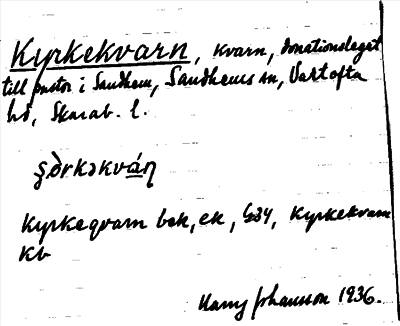 Kyrkekvarn, kvarn, donationslagat
till pastor i Sandhem, Sandhems sn, Vartofta
hd, Skarab. l.
Kyrkeqvarn bek, ek, G34, Kyrkekvarn
Kb
Harry Johansson 1936.